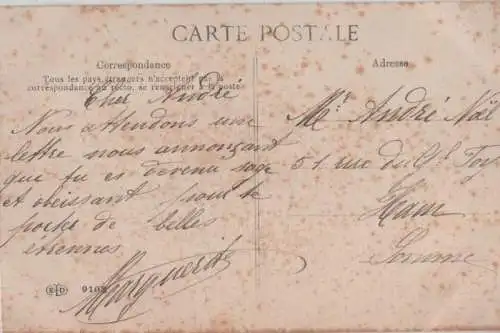 CARTE POSTALE
Correspondance
Tous les pays étrangers n'acceptent pas
correspondance au recto, se renseigner à la poste
Adresse
Cher André
Nous attendons une
lettre nous annonçant
que tu es devenu sage
et obeissant pour te
porter de belles
etrennes
Marguerite
Mr. André Noël
51 rue du Gl Foy
Ham
Somme
ELD 910